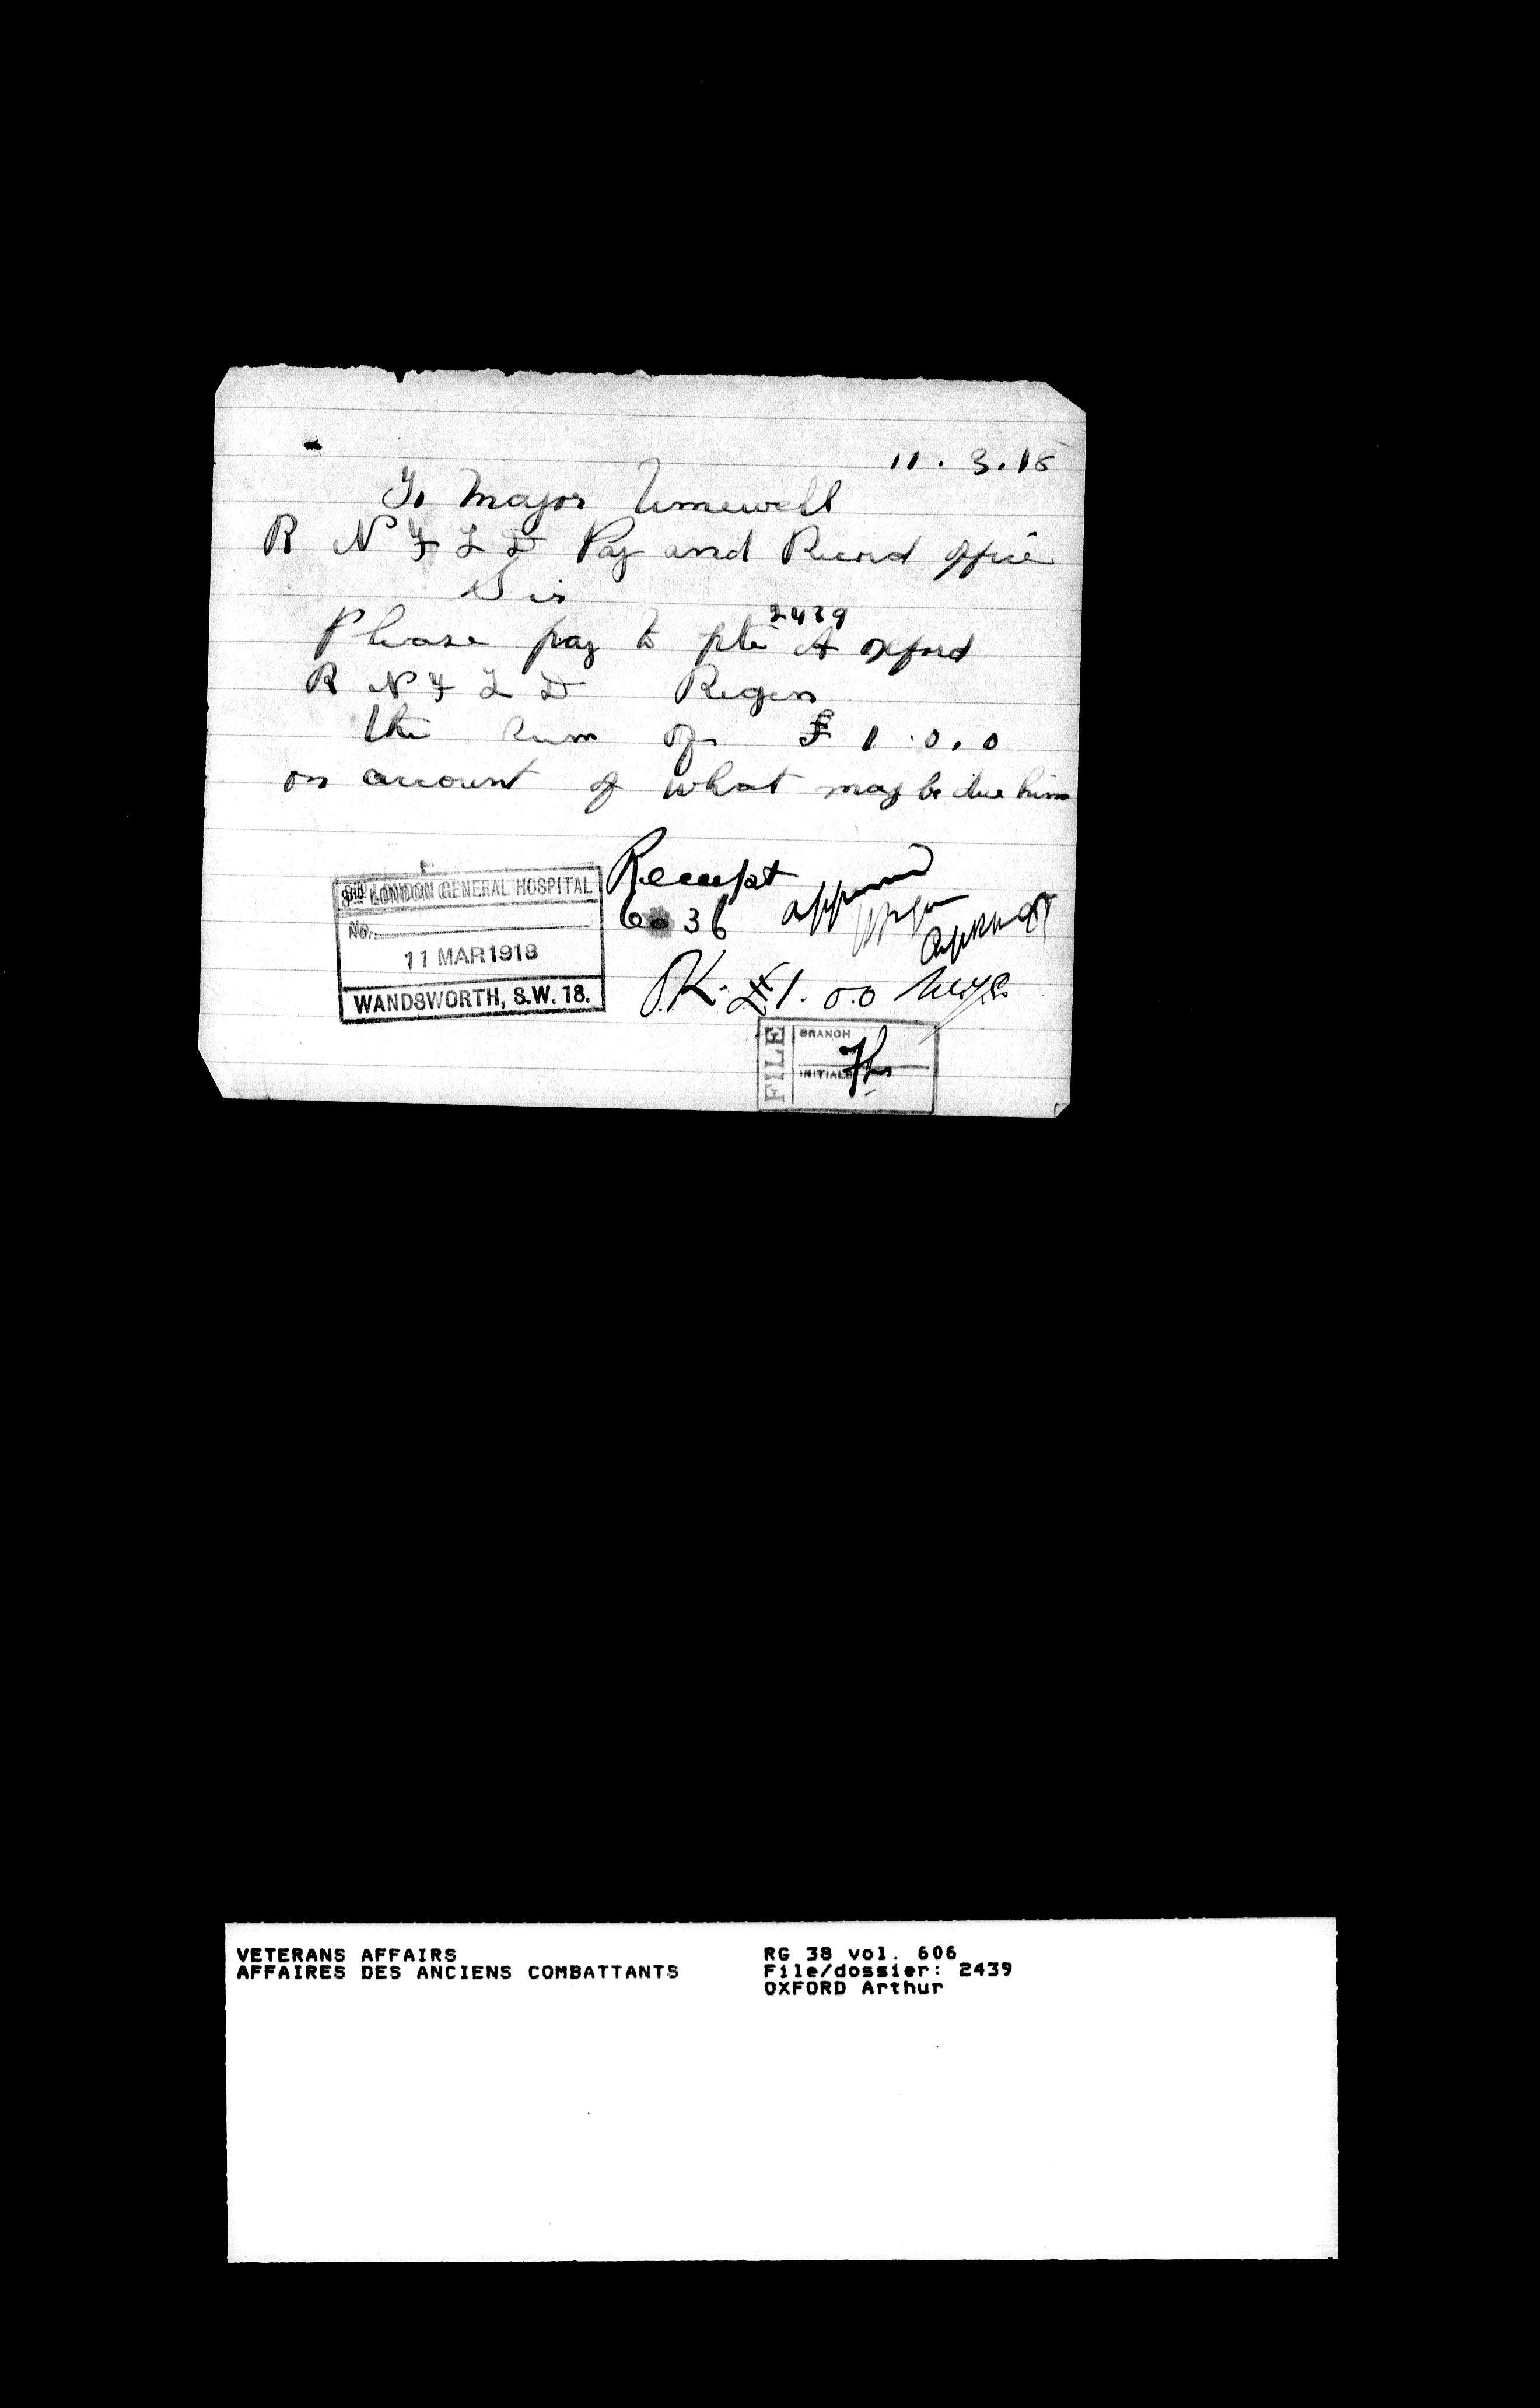 11.3.18
To Major Timewell
R N F L D Pay and Record office
Sir
2439
Please pay to pte A Oxford
R N F L D Regim
the sum of £ 1.0.0
on account of what may be due him
Receipt
6036
O.K. £1.0.0
3RD LONDON GENERAL HOSPITAL
No.
11 MAR 1918
WANDSWORTH, S.W. 18.
FILE
BRANCH
INITIALS
VETERANS AFFAIRS
AFFAIRES DES ANCIENS COMBATTANTS
RG 38 vol. 606
File/dossier: 2439
OXFORD Arthur